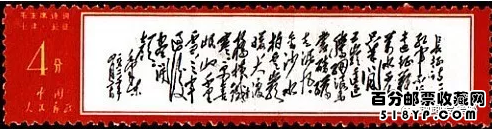 毛主席诗词
4分
中国
人民邮政
红军不怕
远征难
万水千山
只等闲
五岭逶迤
腾细浪
乌蒙磅礴
走泥丸
金沙水
拍云崖
暖大渡
桥横铁索
寒更喜
岷山千
里雪三军
过后
尽开
颜
毛泽东
百分邮票收藏网
518YP.com